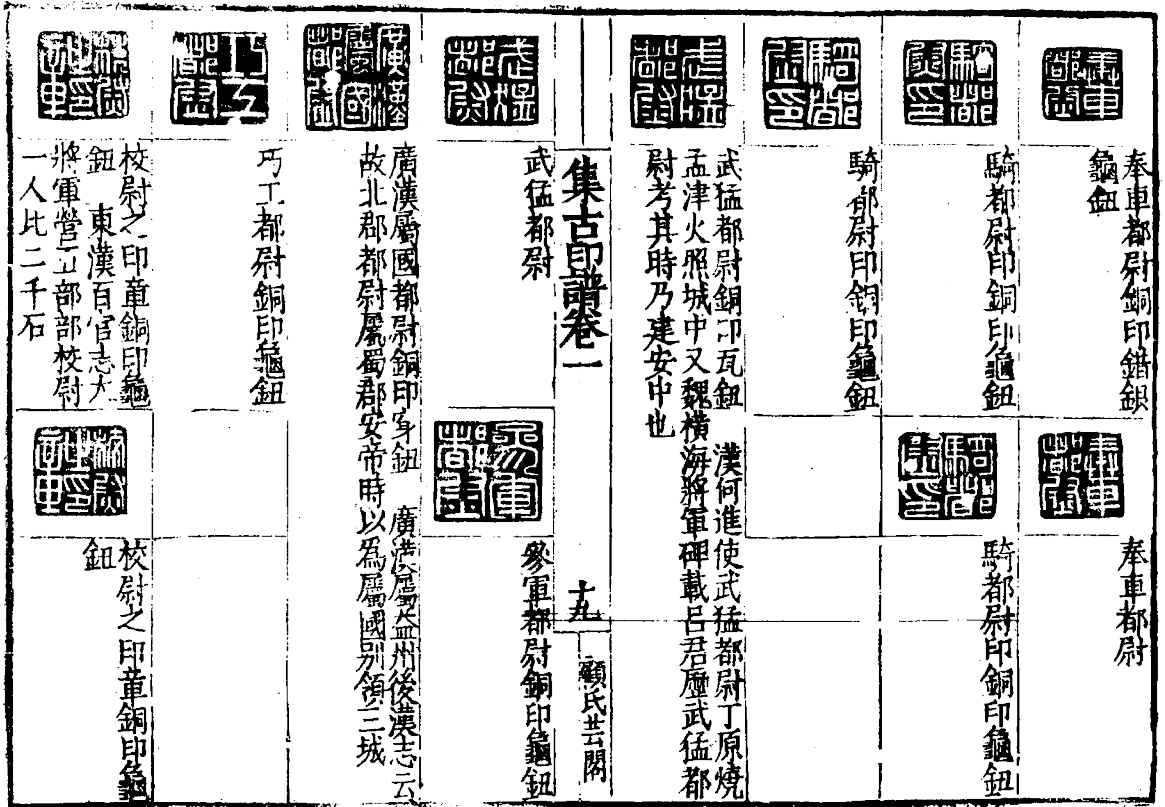 奉車都尉銅印錯銀
龜鈕
奉車都尉
騎都尉印銅印龜鈕
騎都尉印銅印龜鈕
騎都尉印銅印龜鈕
武猛都尉銅印瓦鈕 漢何進使武猛都尉丁原燒
孟津火照城中又魏橫海將軍碑載呂君歷武猛都
尉考其時乃建安中也
集古印譜卷一
十九
顧氏芸閣
武猛都尉
參軍都尉銅印龜鈕
廣漢屬國都尉銅印穿鈕 廣漢屬益州後漢志云
故北郡都尉屬蜀郡安帝時以為屬國別領三城
巧工都尉銅印龜鈕
校尉之印章銅印龜
鈕 東漢百官志大
將軍營五部部校尉
一人比二千石
校尉之印章銅印龜
鈕